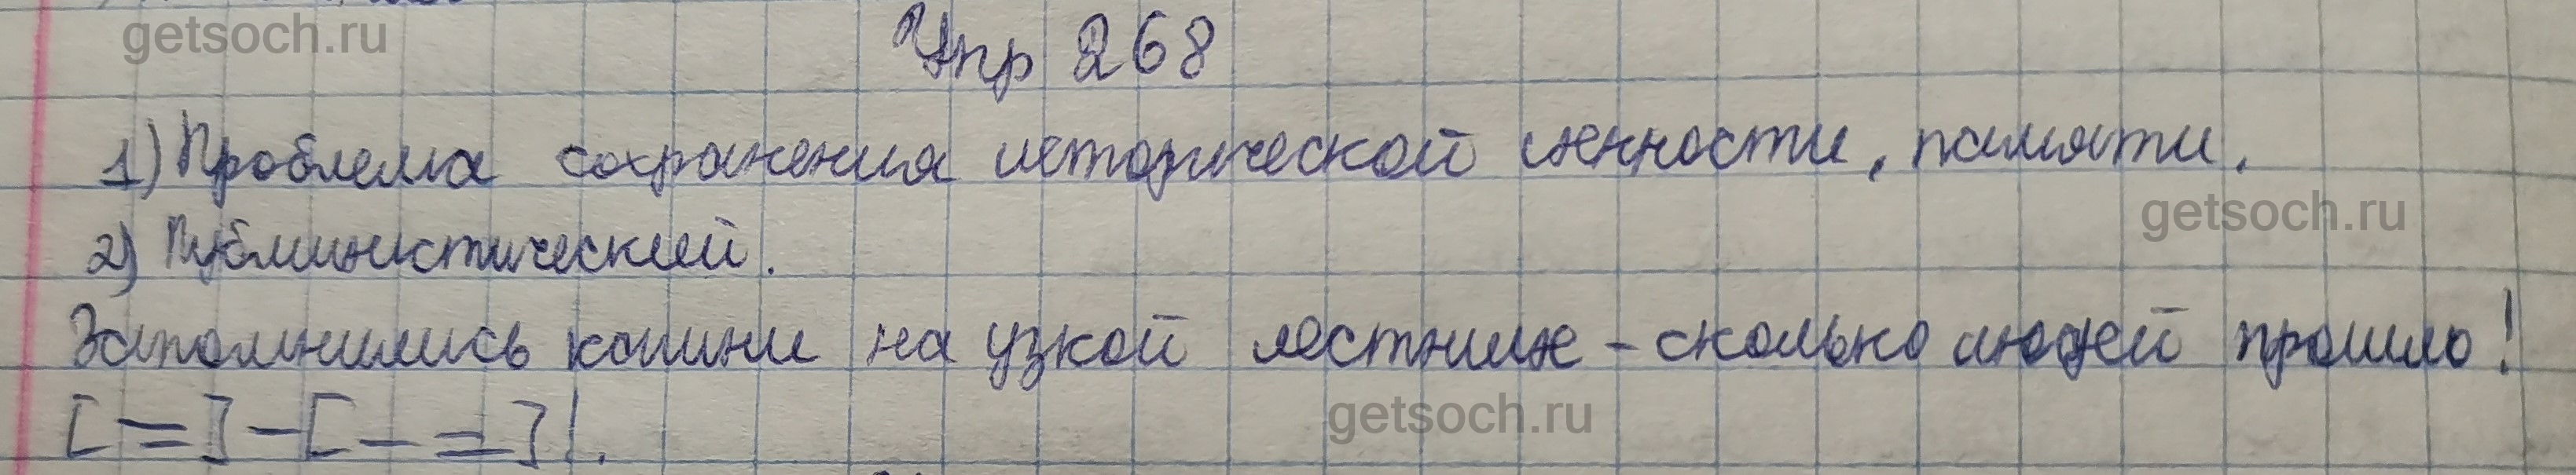 getsoch.ru
Упр 268
1) Проблема сохранения исторической ценности, памяти.
getsoch.ru
2) Публицистический.
Запомнились камни на узкой лестнице - сколько людей прошло!
getsoch.ru
[=]-[-=]!.